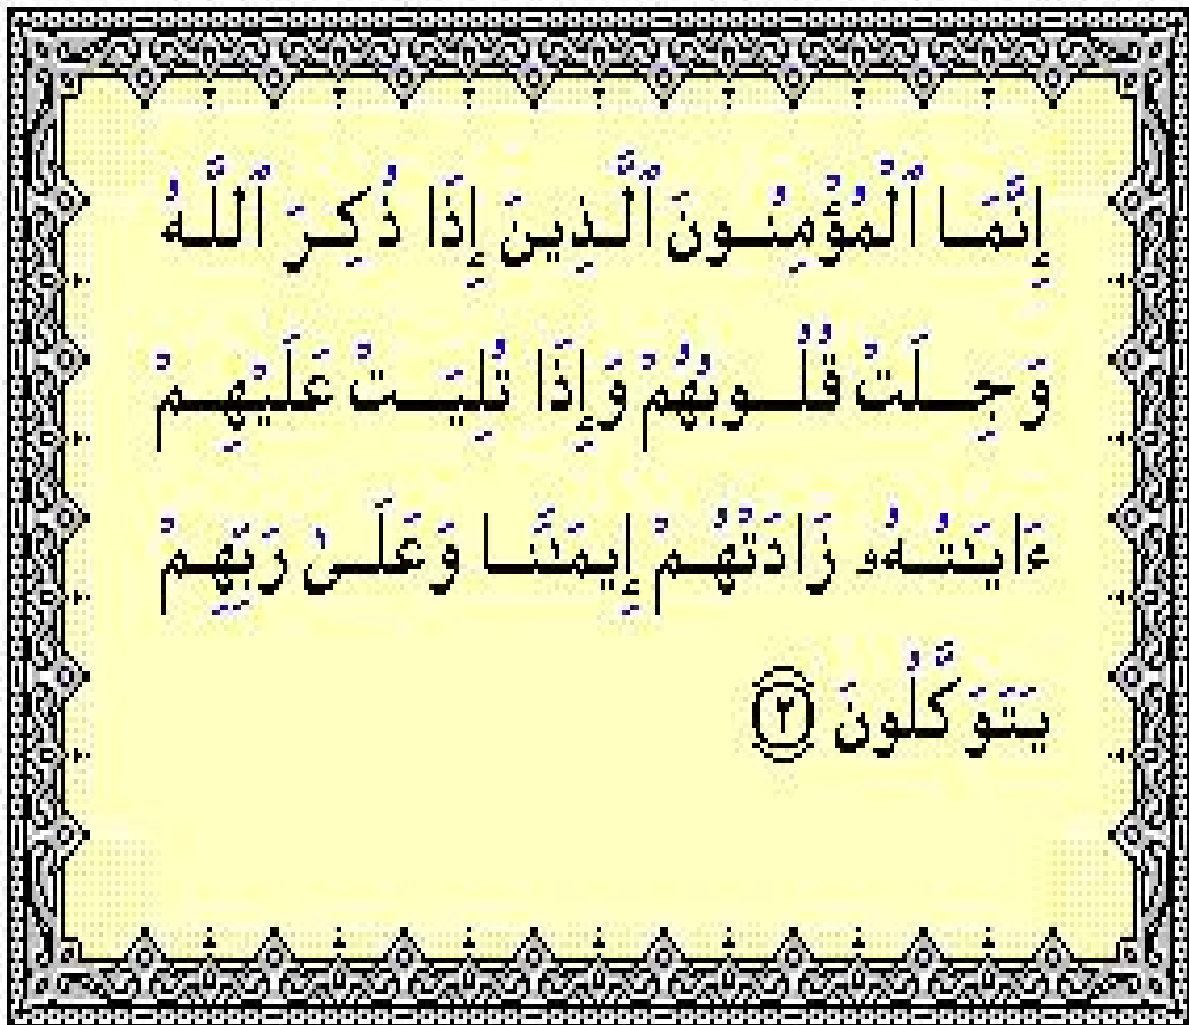 إِنَّمَا ٱلْمُؤْمِنُونَ ٱلَّذِينَ إِذَا ذُكِرَ ٱللَّهُ
وَجِلَتْ قُلُوبُهُمْ وَإِذَا تُلِيَتْ عَلَيْهِمْ
ءَايَـٰتُهُۥ زَادَتْهُمْ إِيمَـٰنًا وَعَلَىٰ رَبِّهِمْ
يَتَوَكَّلُونَ ٢